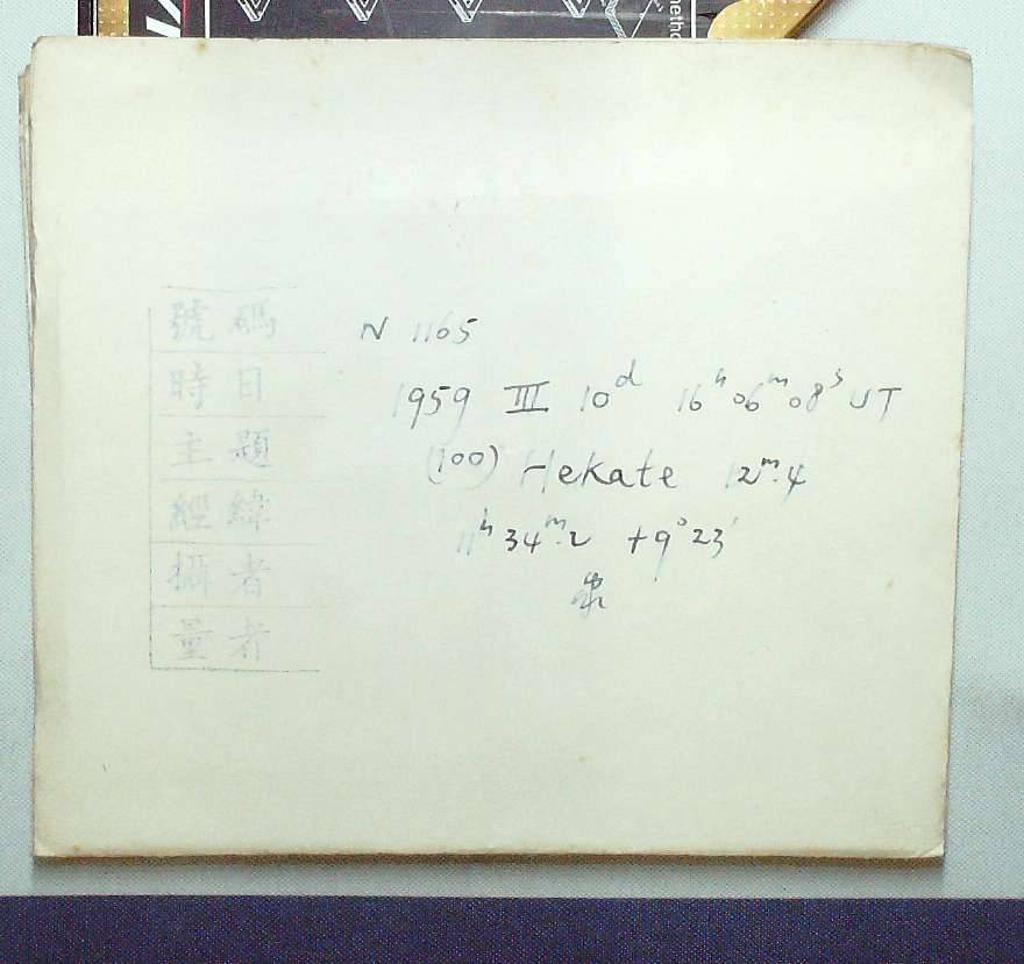 metho
號碼 N 1165
時日 1959 III 10ᵈ 16ʰ06ᵐ08ˢ UT
主題 (100) Hekate 12ᵐ.4
經緯 11ʰ34ᵐ.2 +9°23′
攝者
量者